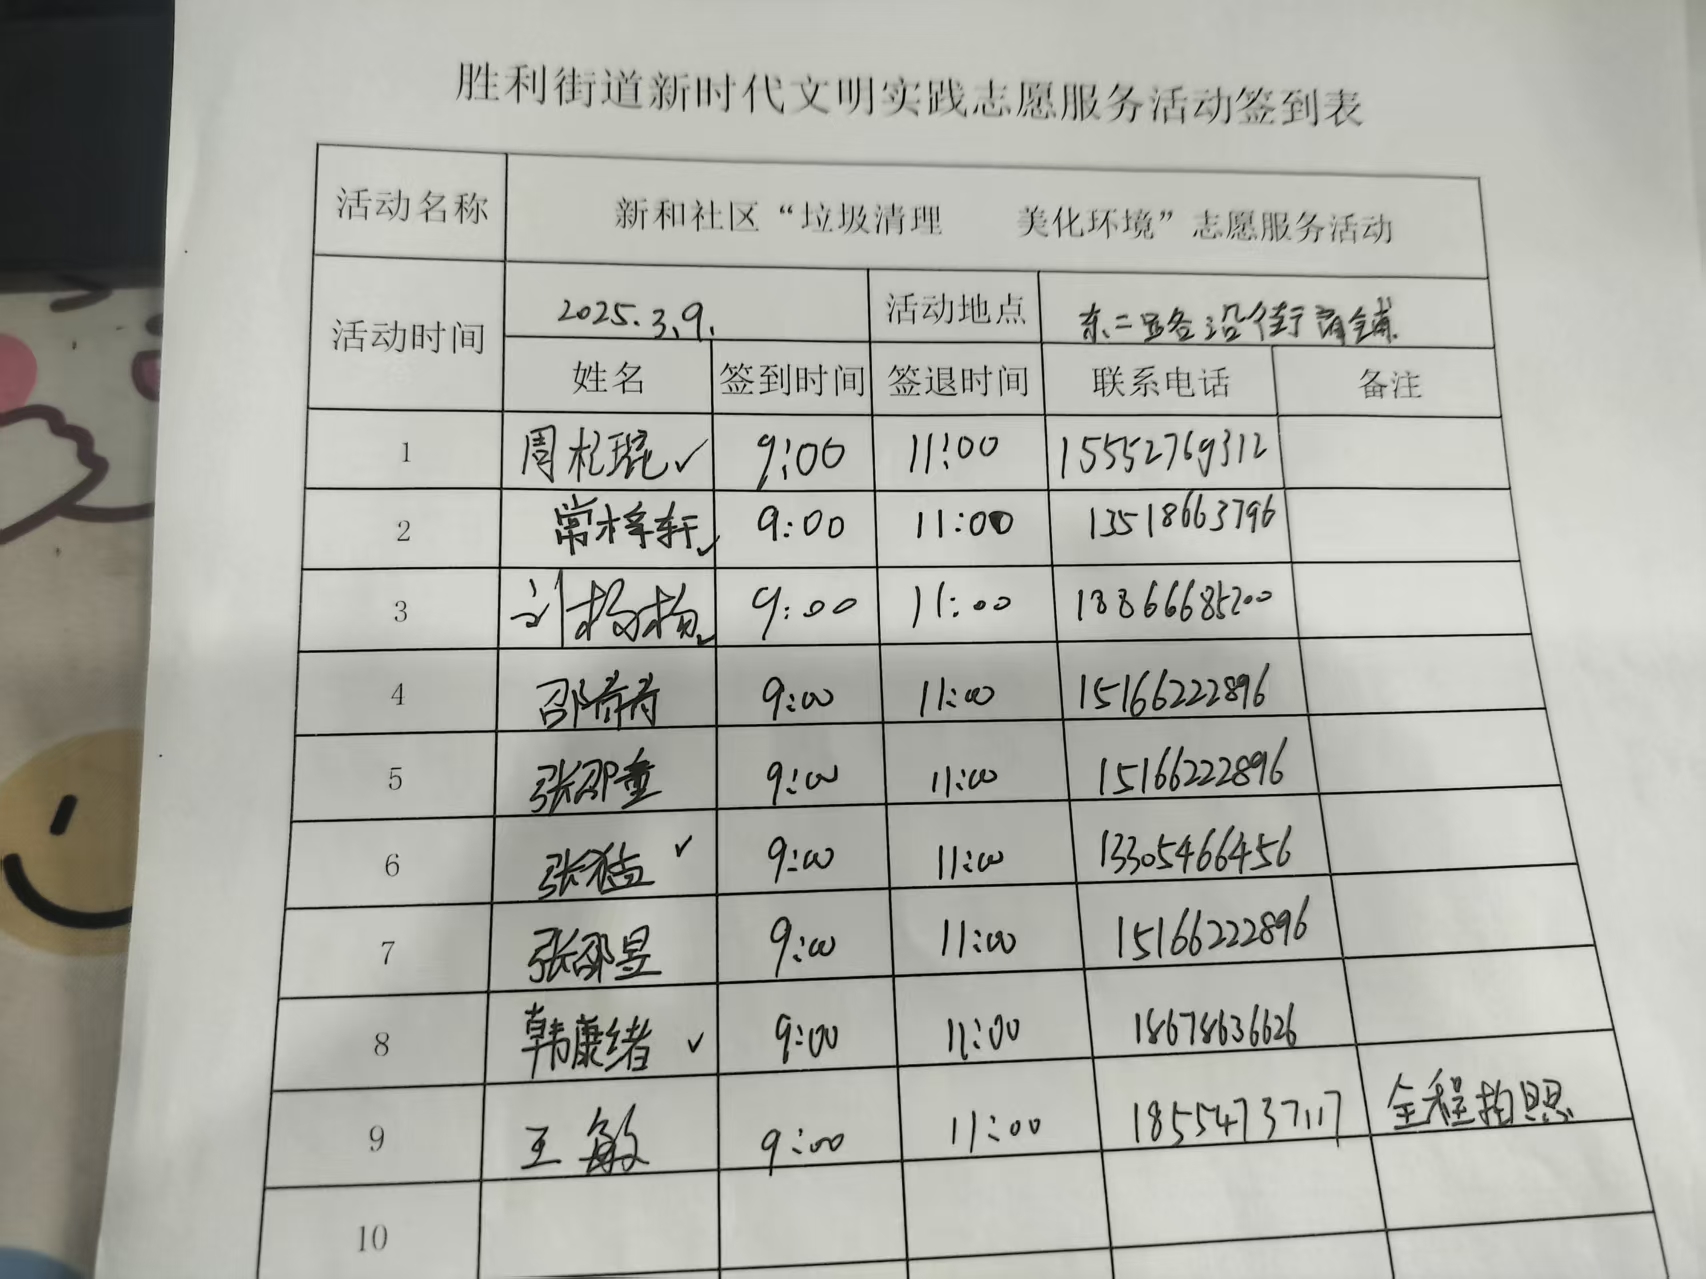 胜利街道新时代文明实践志愿服务活动签到表
活动名称 新和社区“垃圾清理 美化环境”志愿服务活动
活动时间 2025.3.9. 活动地点 东二路沿街商铺.
姓名 签到时间 签退时间 联系电话 备注
1 周松琨✓ 9:00 11:00 15552769312
2 常梓轩✓ 9:00 11:00 13518663796
3 刘杨杨✓ 9:00 11:00 18866685200
4 邵 9:00 11:00 15166222896
5 张邵童 9:00 11:00 15166222896
6 张 ✓ 9:00 11:00 13305466456
7 张邵昱 9:00 11:00 15166222896
8 韩康绪 ✓ 9:00 11:00 18678636626
9 王敏 9:00 11:00 18554737117 全程拍照
10